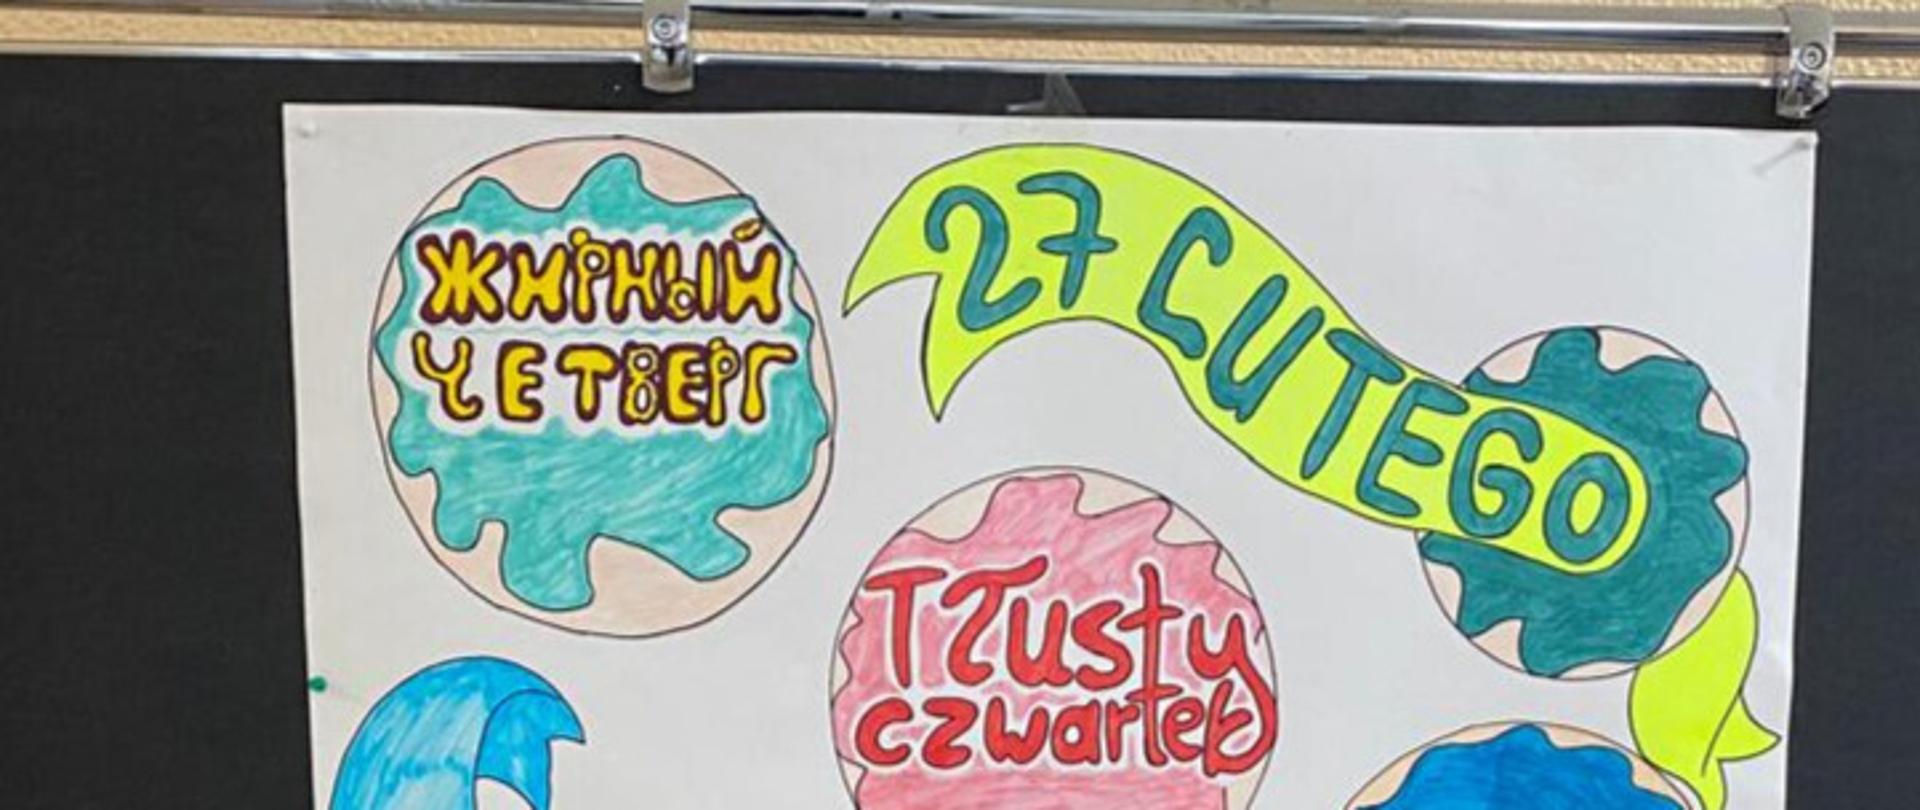 ЖИРНЫЙ
ЧЕТВЕРГ
27 LUTEGO
Tłusty
czwartek